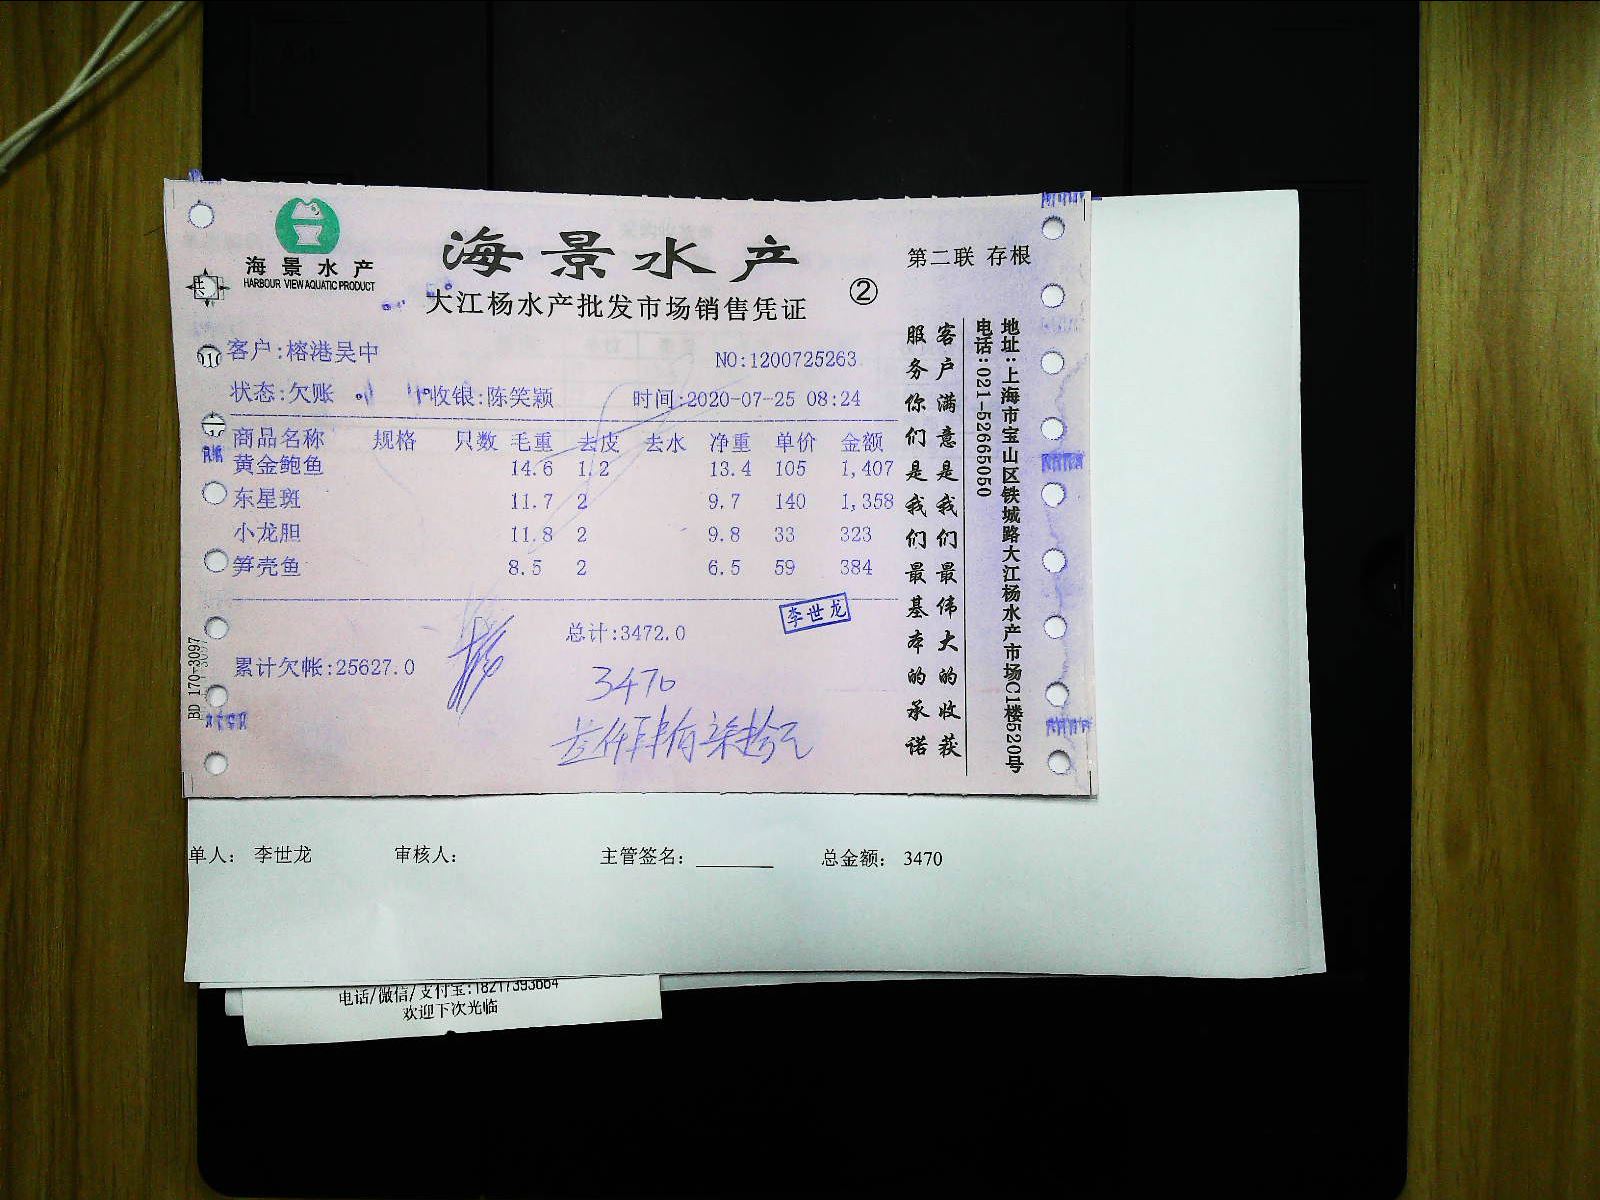 海景水产
HARBOUR VIEW AQUATIC PRODUCT
海景水产
大江杨水产批发市场销售凭证
②
第二联 存根
客户:榕港吴中
NO:1200725263
状态:欠账 收银:陈笑颖 时间:2020-07-25 08:24
商品名称 规格 只数 毛重 去皮 去水 净重 单价 金额
黄金鲍鱼 14.6 1.2 13.4 105 1,407
东星斑 11.7 2 9.7 140 1,358
小龙胆 11.8 2 9.8 33 323
笋壳鱼 8.5 2 6.5 59 384
总计:3472.0
李世龙
累计欠帐:25627.0
3470
叁仟肆佰柒拾元
客户满意是我们最伟大的收获
服务你们是我们最基本的承诺
地址:上海市宝山区铁城路大江杨水产市场C1楼520号
电话:021-52665050
BD 170-3097
单人: 李世龙 审核人: 主管签名: 总金额: 3470
电话/微信/支付宝:18217393664
欢迎下次光临